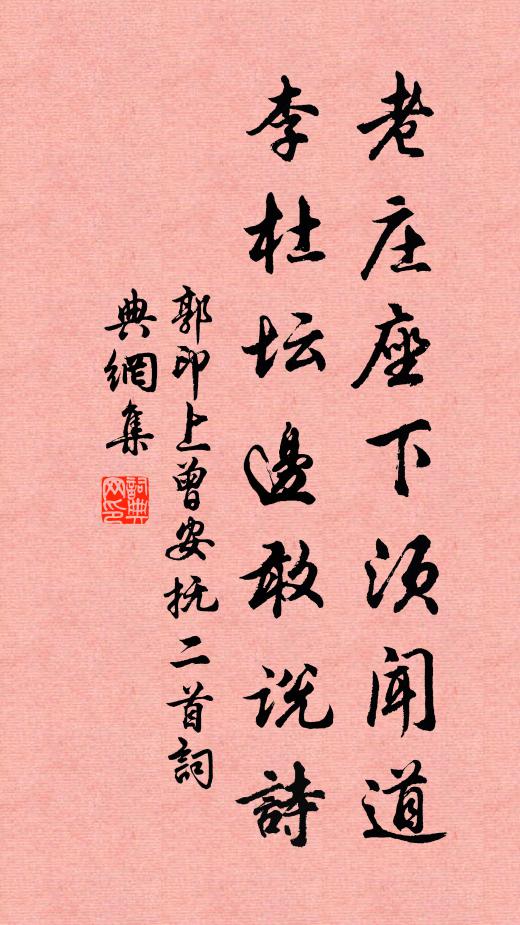 老庄座下须闻道
李杜坛邊敢说詩
郭印上曾安抚二首詞
典網集
詞典网印